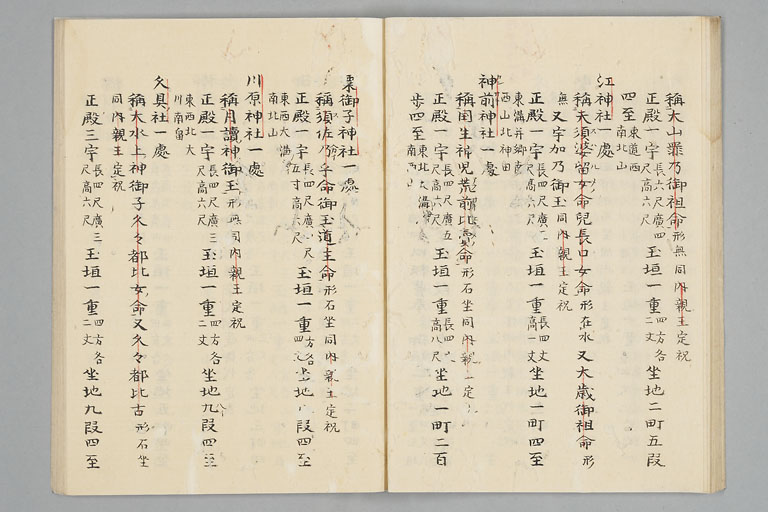 稱大山罪乃御祖命形無同内親王定祝
正殿一宇長六尺廣四尺高六尺玉垣一重四方各二丈坐地二町五段
四至東道西南北山
江神社一處
稱天須婆留女命兒長口女命形在水又大歳御祖命形
無又宇加乃御玉同内親王定祝
正殿一宇長四尺廣二尺高六尺玉垣一重長四丈高一丈坐地一町四至
東溝并郷南西山北神田
神前神社一處
稱國生神兒荒前比賣命形石坐同内親定
正殿一宇長四尺廣五尺高六尺玉垣一重長四高八尺坐地一町二百
歩四至東北大溝南西山
栗御子神社一處
稱須佐乃乎命御玉道主命形石坐同内親王定祝
正殿一宇長四尺廣尺五寸高六尺玉垣一重四方各丈坐地段四至
東西大溝南北山
川原神社一處
稱月讀神御玉形無同内親王定祝
正殿一宇長四尺廣三尺高六尺玉垣一重四方各二丈坐地九段四至
東西北大川南畠
久具社一處
稱大水上神御子久々都比女命又久々都比古形石坐
同内親王定祝
正殿三宇長四尺廣三尺高六尺玉垣一重四方各二丈坐地九段四至